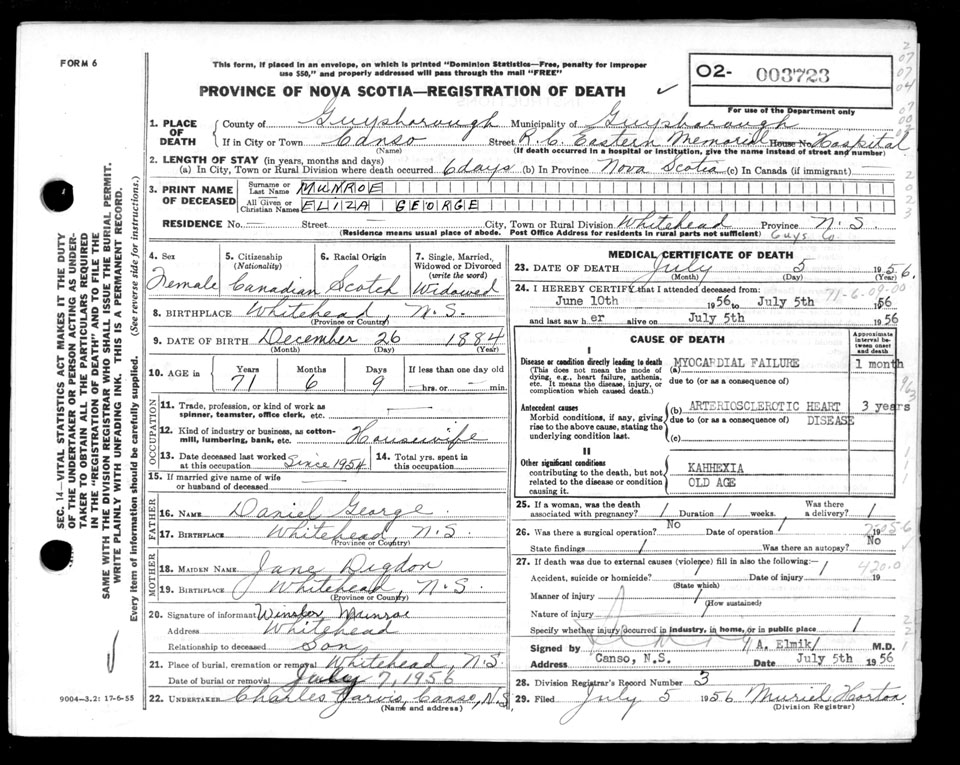 FORM 6
This form, if placed in an envelope, on which is printed "Dominion Statistics—Free, penalty for improper
use $50," and properly addressed will pass through the mail "FREE"
PROVINCE OF NOVA SCOTIA—REGISTRATION OF DEATH
02- 003723
For use of the Department only
1. PLACE OF DEATH
County of Guysborough Municipality of Guysborough
If in City or Town Canso Street R.C. Eastern Memorial House No. Hospital
(Name) (If death occurred in a hospital or institution, give the name instead of street and number)
2. LENGTH OF STAY (in years, months and days)
(a) In City, Town or Rural Division where death occurred 6 days (b) In Province Nova Scotia (c) In Canada (if immigrant)
3. PRINT NAME OF DECEASED
Surname or Last Name MUNROE
All Given or Christian Names ELIZA GEORGE
RESIDENCE No. — Street — City, Town or Rural Division Whitehead Province N.S.
(Residence means usual place of abode. Post Office Address for residents in rural parts not sufficient) Guys Co
4. Sex Female
5. Citizenship (Nationality) Canadian
6. Racial Origin Scotch
7. Single, Married, Widowed or Divorced (write the word) Widowed
8. BIRTHPLACE Whitehead, N.S.
(Province or Country)
9. DATE OF BIRTH December 26 1884
(Month) (Day) (Year)
10. AGE in Years 71 Months 6 Days 9 If less than one day old
— hrs. or — min.
OCCUPATION
11. Trade, profession, or kind of work as spinner, teamster, office clerk, etc. —
12. Kind of industry or business, as cotton-mill, lumbering, bank, etc. Housewife
13. Date deceased last worked at this occupation Since 1954
14. Total yrs. spent in this occupation
15. If married give name of wife or husband of deceased
FATHER
16. NAME Daniel George
17. BIRTHPLACE Whitehead, N.S.
(Province or Country)
MOTHER
18. MAIDEN NAME Jane Digdon
19. BIRTHPLACE Whitehead, N.S.
(Province or Country)
20. Signature of informant Winsor Munroe
Address Whitehead
Relationship to deceased Son
21. Place of burial, cremation or removal Whitehead, N.S.
Date of burial or removal July 7, 1956
22. UNDERTAKER Charles Jarvis, Canso, N.S
(Name and address)
MEDICAL CERTIFICATE OF DEATH
23. DATE OF DEATH July 5 1956.
(Month) (Day) (Year)
24. I HEREBY CERTIFY that I attended deceased from: 71-6-09-00
June 10th 1956 to July 5th 1956
and last saw h er alive on July 5th 1956
CAUSE OF DEATH
Approximate interval between onset and death
I
Disease or condition directly leading to death (a) MYOCARDIAL FAILURE 1 month
(This does not mean the mode of dying, e.g., heart failure, asthenia, etc. It means the disease, injury, or complication which caused death.)
due to (or as a consequence of)
Antecedent causes (b) ARTERIOSCLEROTIC HEART DISEASE 3 years
Morbid conditions, if any, giving rise to the above cause, stating the underlying condition last.
due to (or as a consequence of)
(c)
II
Other significant conditions KAHHEXIA
contributing to the death, but not related to the disease or condition causing it. OLD AGE
25. If a woman, was the death associated with pregnancy? / Duration / weeks. Was there a delivery? /
26. Was there a surgical operation? No Date of operation / 19
State findings / Was there an autopsy? No
27. If death was due to external causes (violence) fill in also the following: /
420.0
Accident, suicide or homicide? / Date of injury / 19
(State which)
Manner of injury /
(How sustained)
Nature of injury /
Specify whether injury occurred in industry, in home, or in public place /
Signed by A. Elmik M.D.
Address Canso, N.S. Date July 5th 1956
28. Division Registrar's Record Number 3
29. Filed July 5 1956 Muriel Horton
(Division Registrar)
SEC. 14—VITAL STATISTICS ACT MAKES IT THE DUTY
OF THE UNDERTAKER OR PERSON ACTING AS UNDER-
TAKER TO OBTAIN ALL THE PARTICULARS REQUIRED
IN THE "REGISTRATION OF DEATH" AND TO FILE THE
SAME WITH THE DIVISION REGISTRAR WHO SHALL ISSUE THE BURIAL PERMIT.
WRITE PLAINLY WITH UNFADING INK. THIS IS A PERMANENT RECORD.
Every item of information should be carefully supplied. (See reverse side for instructions.)
9004—3.2: 17-6-55